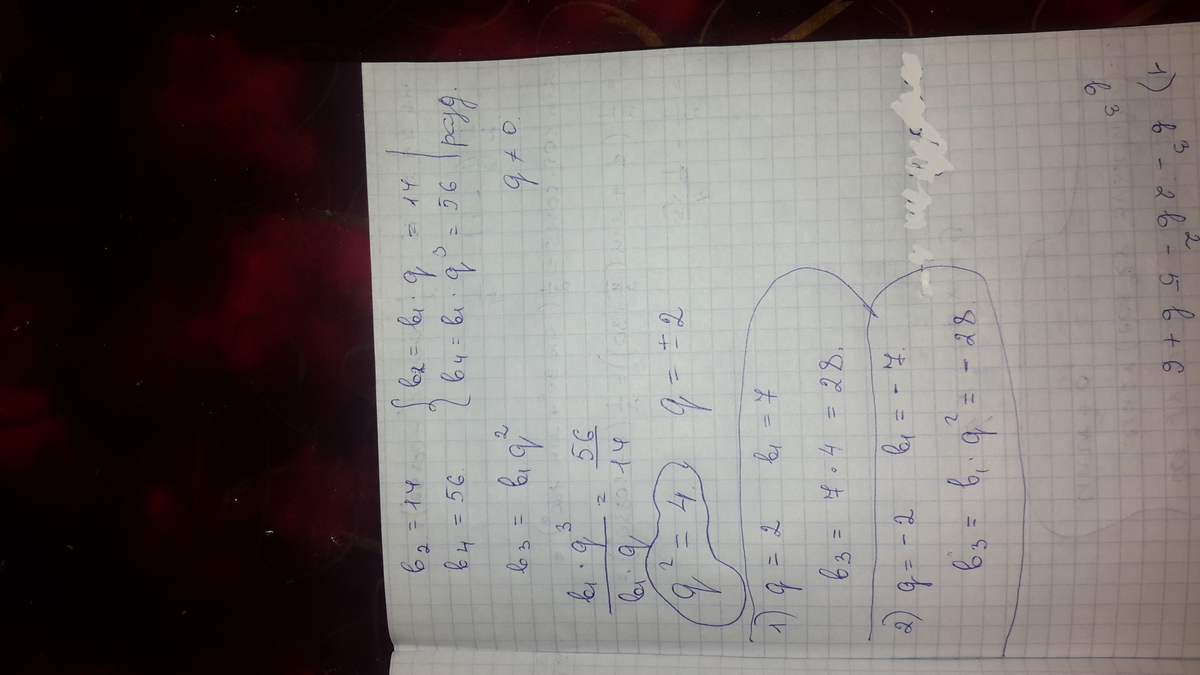 b₂ = 14 { b₂ = b₁ · q = 14 |
b₄ = 56 { b₄ = b₁ · q³ = 56 | разд.
b₃ = b₁ q² q ≠ 0.
b₁ · q³ / b₁ · q = 56 / 14
q² = 4. q = ±2
1) q = 2 b₁ = 7
b₃ = 7 · 4 = 28.
2) q = -2 b₁ = -7.
b₃ = b₁ · q² = -28
b³
1) b³ - 2b² - 5b + 6